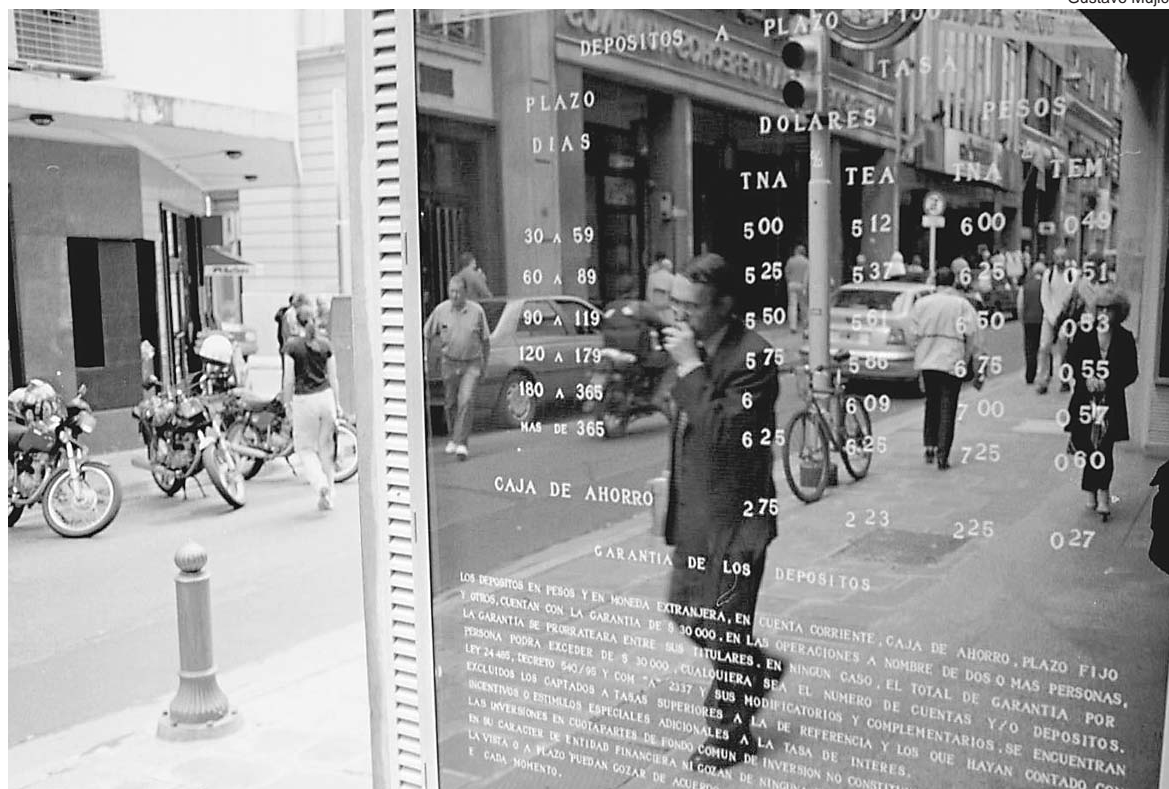 Gustavo Mujic
DEPOSITOS A PLAZO FIJO
TASA
PLAZO
DIAS
DOLARES
PESOS
%
TNA TEA TNA TEM
30 A 59 5 00 5 12 6 00 0 49
60 A 89 5 25 5 37 6 25 0 51
90 A 119 5 50 5 61 6 50 0 53
120 A 179 5 75 5 86 6 75 0 55
180 A 365 6 6 09 7 00 0 57
MAS DE 365 6 25 6 25 7 25 0 60
CAJA DE AHORRO 2 75 2 23 2 25 0 27
GARANTIA DE LOS DEPOSITOS
LOS DEPOSITOS EN PESOS Y EN MONEDA EXTRANJERA, EN CUENTA CORRIENTE, CAJA DE AHORRO, PLAZO FIJO
Y OTROS, CUENTAN CON LA GARANTIA DE $ 30 000. EN LAS OPERACIONES A NOMBRE DE DOS O MAS PERSONAS,
LA GARANTIA SE PRORRATEARA ENTRE SUS TITULARES. EN NINGUN CASO, EL TOTAL DE GARANTIA POR
PERSONA PODRA EXCEDER DE $ 30 000, CUALQUIERA SEA EL NUMERO DE CUENTAS Y/O DEPOSITOS.
LEY 24 485, DECRETO 540/95 Y COM "A" 2337 Y SUS MODIFICATORIOS Y COMPLEMENTARIOS. SE ENCUENTRAN
EXCLUIDOS LOS CAPTADOS A TASAS SUPERIORES A LA DE REFERENCIA Y LOS QUE HAYAN CONTADO CON
INCENTIVOS O ESTIMULOS ESPECIALES ADICIONALES A LA TASA DE INTERES.
LAS INVERSIONES EN CUOTAPARTES DE FONDO COMUN DE INVERSION NO
EN SU CARACTER DE ENTIDAD FINANCIERA NI GOZAN DE
LA VISTA O A PLAZO PUEDAN GOZAR DE
E CADA MOMENTO.